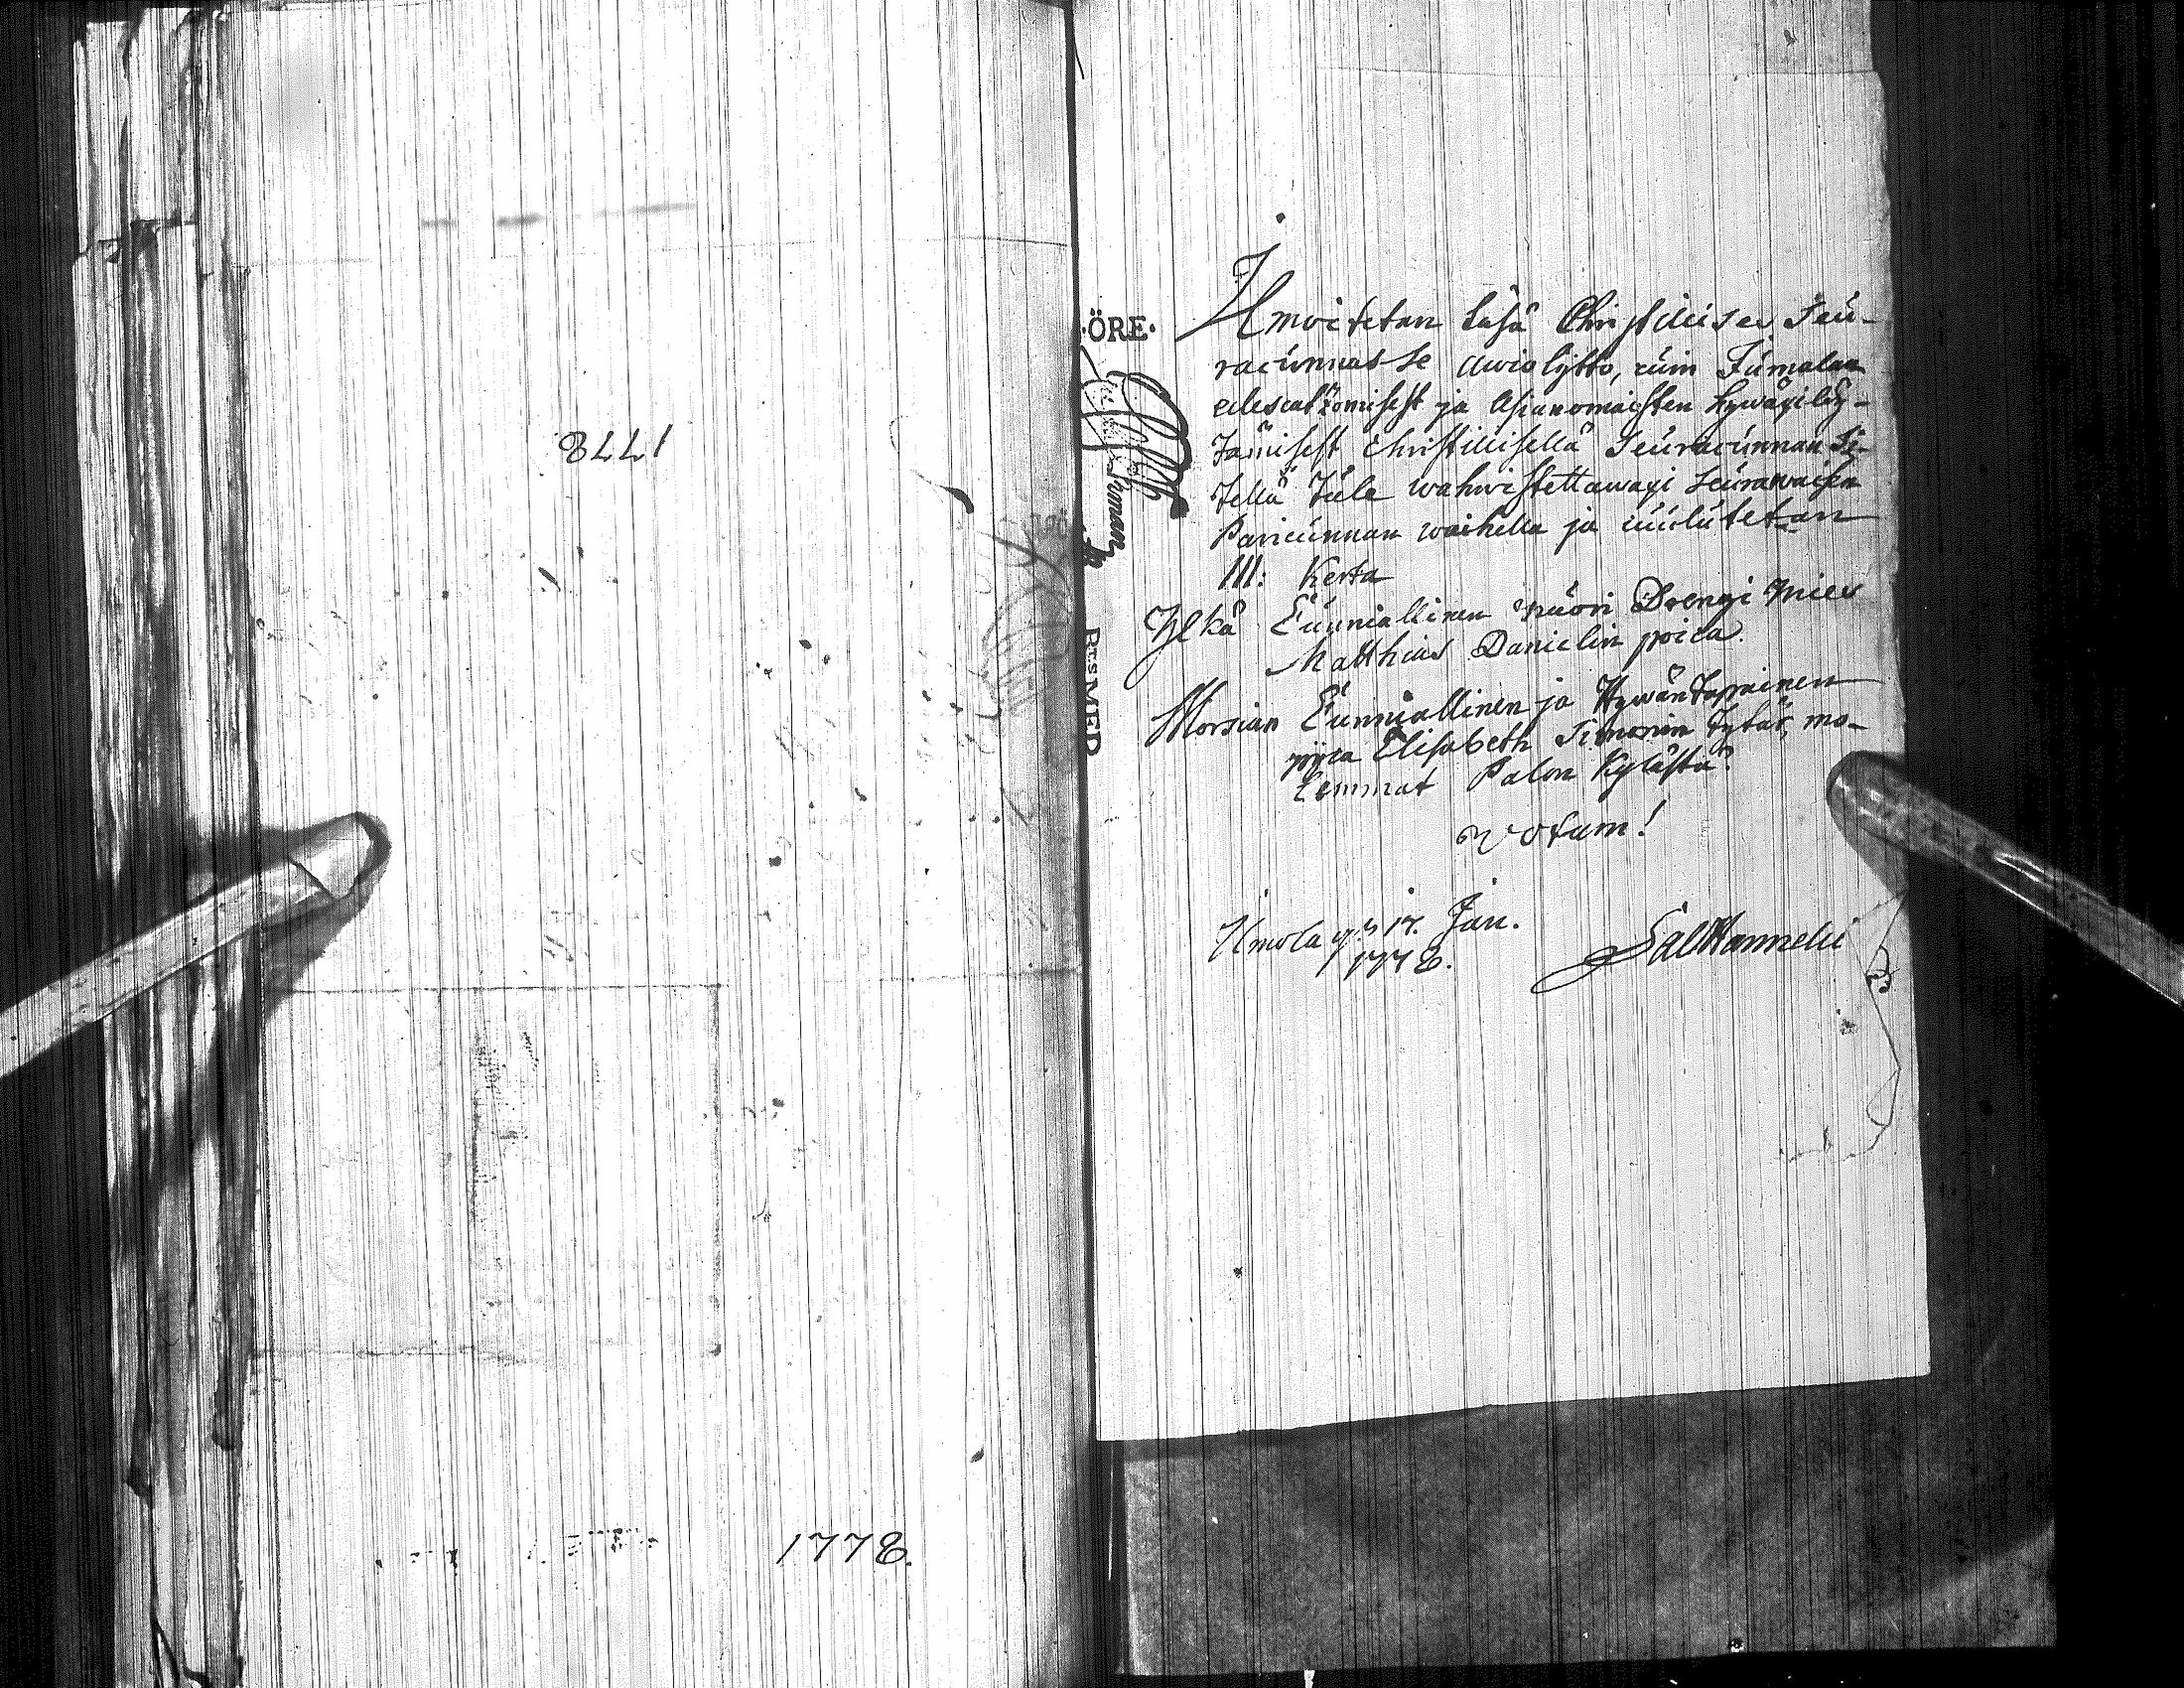 1778
1778.
·ÖRE·
RTSMED
Ilmoitetan täsä Christilises Seu-
racunnas se Awiolijtto, cuin Jumalan
edescatzomisest ja Asianomaisten hywäxilöy-
tämisest Christillisellä Seuracunnan Si-
tellä tule wahwistettawaxi seurawaisen
Pariscunnan waihella ja cuulutetan
III: Kerta
Ylkä Cunniallinen nuori Drengi mies
Matthias Danielin poica.
Morsian Cunniallinen ja Hywäntapainen
pijca Elisabeth Simonin tytär, mo-
lemmat Palon Kylästä.
Votum!
Ilmola 17. Jan.
1778.